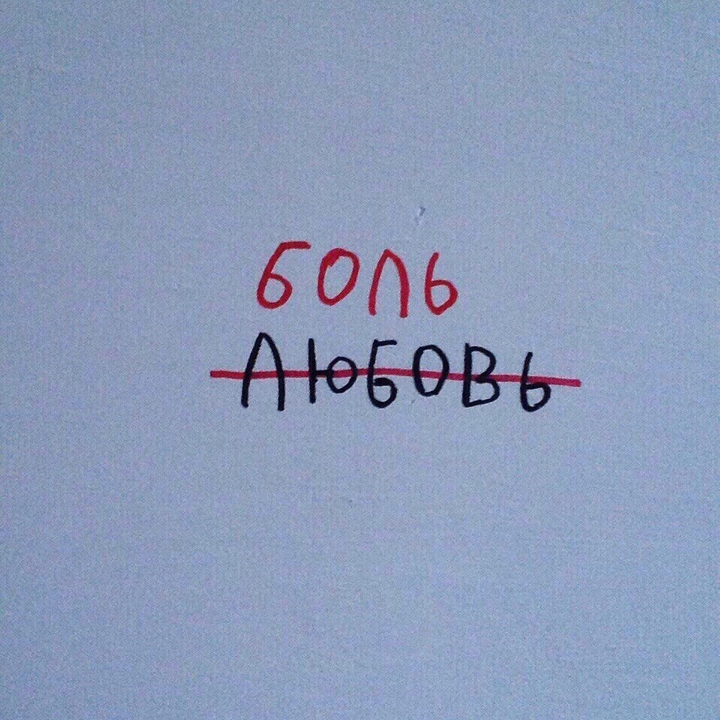 боль
любовь